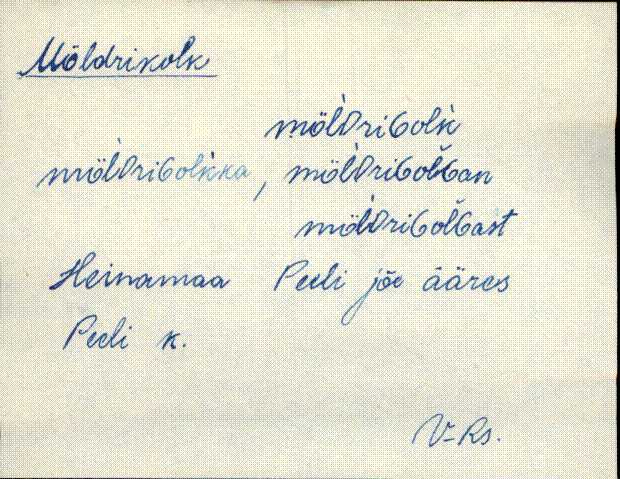 Möldrikolk
mö̀ldriɢolk̀
mö̀ldriɢolk̀ka, mö̀ldriɢoĺɢan
mö̀ldriɢoĺɢast
Heinamaa Peeli jõe ääres
Peeli k.
V-Rs.